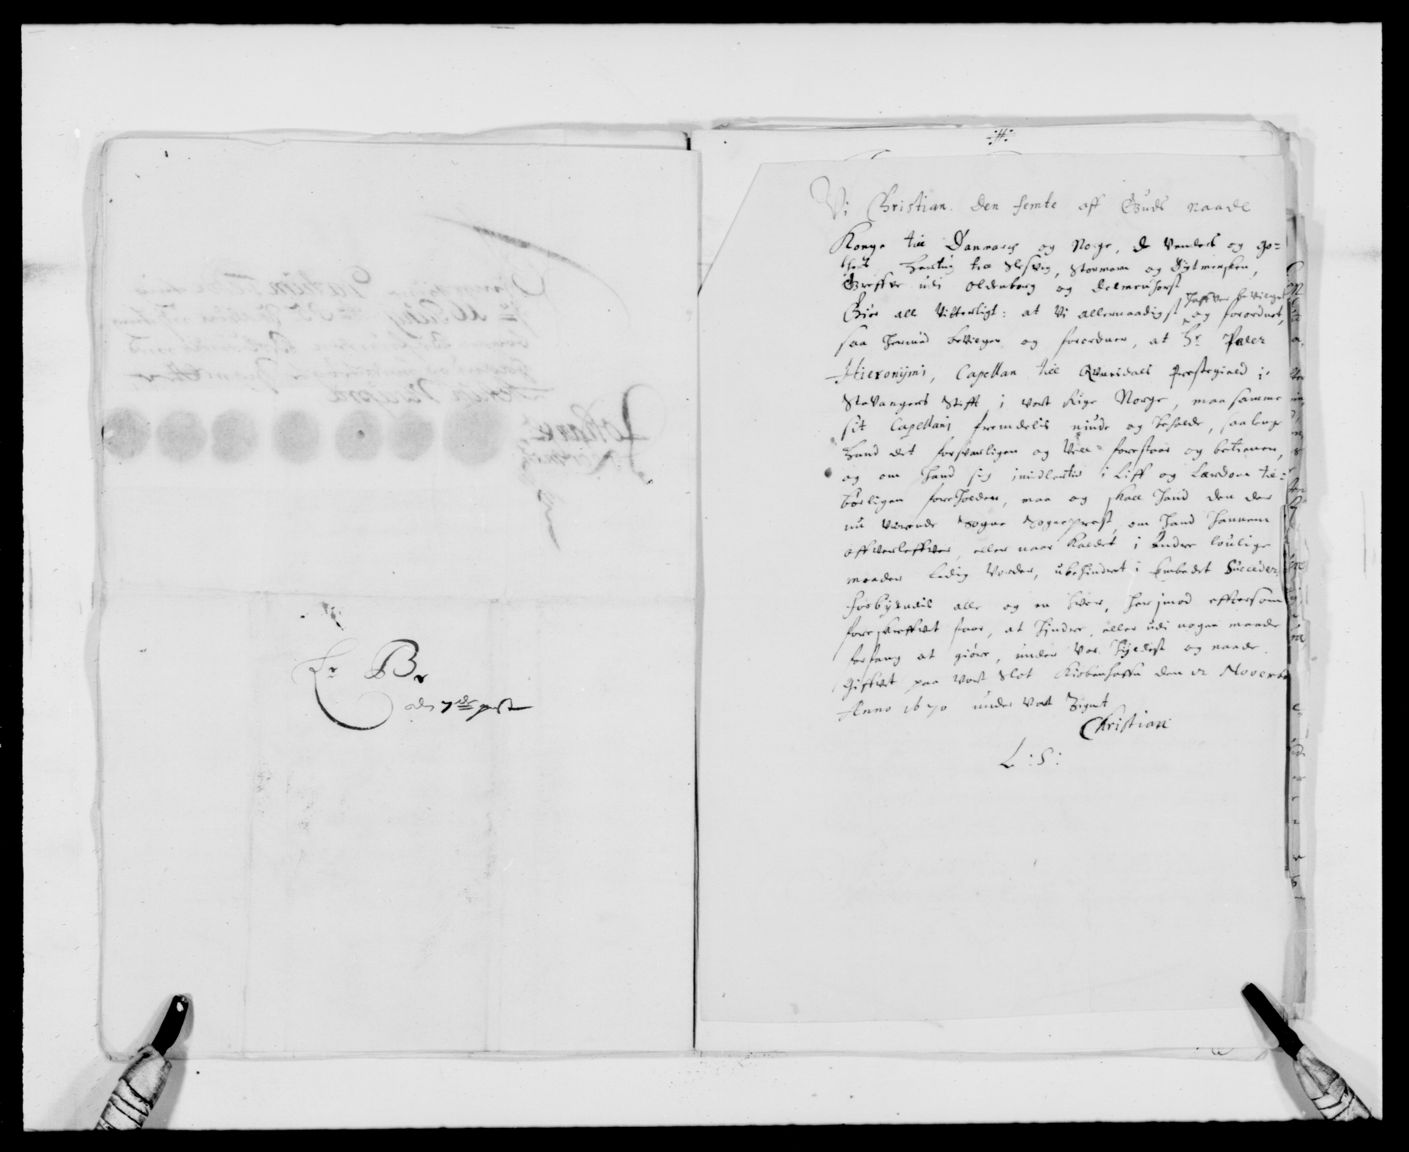 Lr Br
ad 7de post
:H:
Vi Christian den femte aff Guds naade
Konge til Danmarck og Norge, de Venders og Go=
thers Hertug till Slesvig, Stormarn og Dytmersken,
Greffve udi Oldenborg og Delmenhorst
Giør alle Vitterligt: at Vi allernaadigst haffver bevilget og forordnet,
saa hermed bevilger og forordner, at Hr Peter
Hieronijmi, Capellan till Qvindals Prestegield i
Stavangers Stifft i vort Rige Norge, maa samme
sit Capellanj fremdelis niude og beholde, saalenge
hand det forsvarligen og Vel forestaar og betiener,
og om hand sig imidlertid i Liff og Lærdom til=
børligen forholder, maa og skall hand den der
nu Værende Sogne Sogneprest, om hand hannem
offverleffver, eller naar Kaldet i Andre loulige
maader Ledig Vorder, ubehindret i Embedet Succedere,
forbydendis alle og en hver, herjmod eftersom
foreskreffvet staar, at hindre, eller udi nogen maade
forfang at giøre, under Vor hyldest og naade.
Giffvet paa Vort Slot Kiøbenhaffn den 12 Novembr
Anno 1670 under Vort Zignet
Christian
L:S: